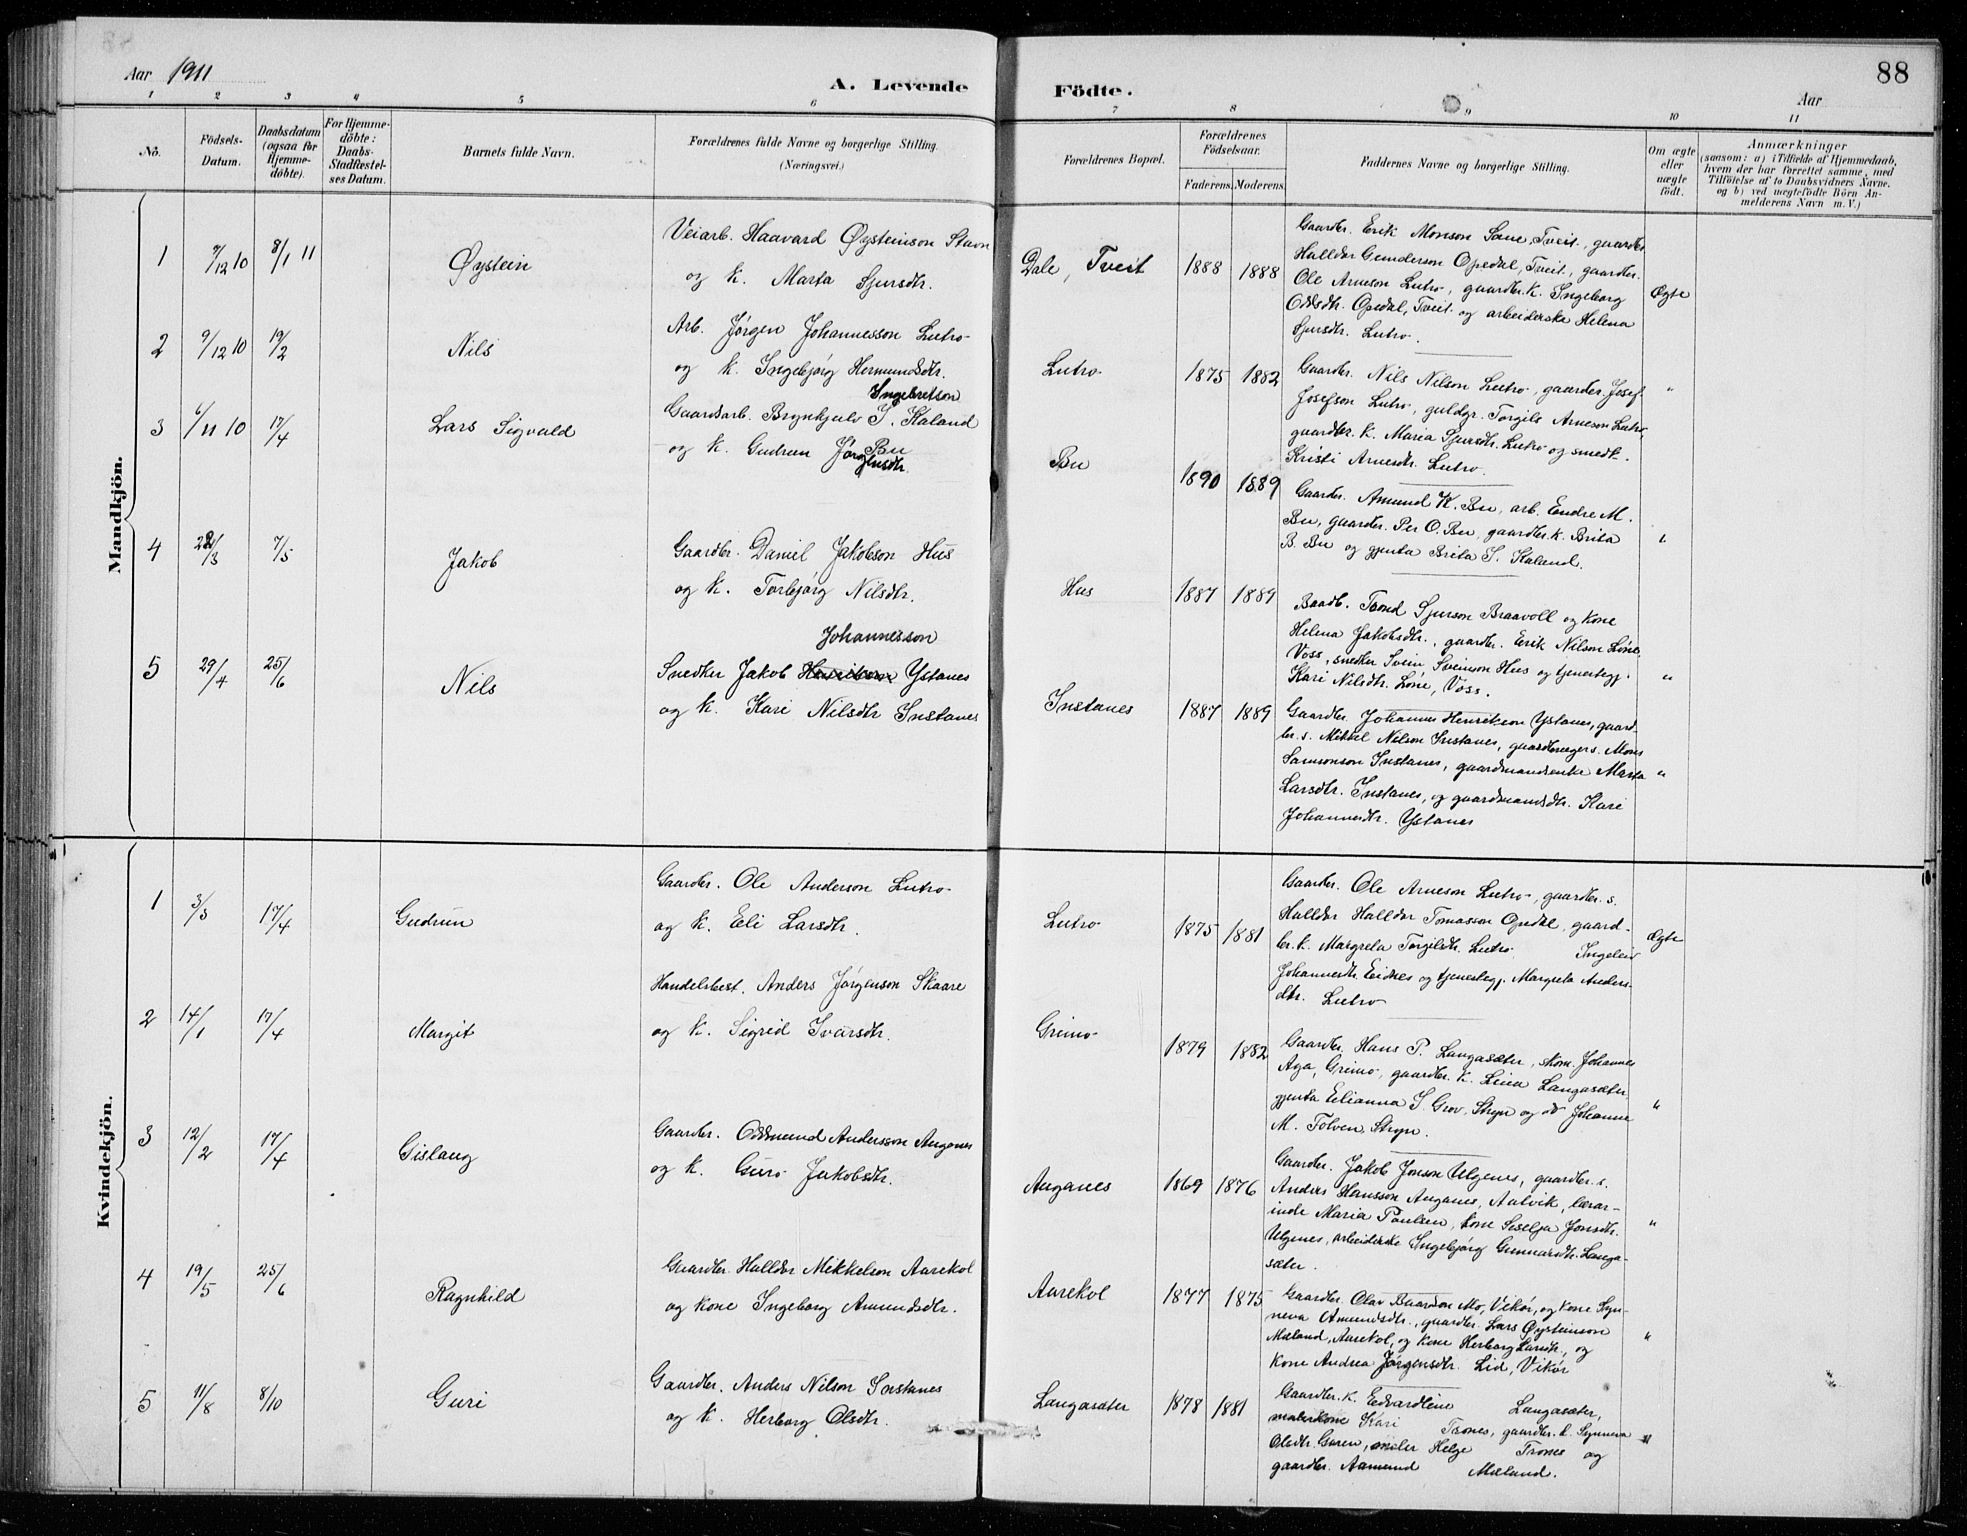 Aar 1911
A. Levende Födte.
Aar
88
1 2 3 4 5 6 7 8 9 10 11
No.
Födsels-
Datum.
Daabsdatum
(ogsaa for
Hjemme-
döbte).
For Hjemme-
döbte:
Daabs-
Stadfæstel-
ses Datum.
Barnets fulde Navn.
Forældrenes fulde Navne og borgerlige Stilling.
(Næringsvei.)
Forældrenes Bopæl.
Forældrenes
Födselsaar.
Faderens. Moderens.
Faddernes Navne og borgerlige Stilling.
Om ægte
eller
uægte
födt.
Anmærkninger
(saasom: a) i Tilfælde af Hjemmedaab,
hvem der har forrettet samme, med
Tilföielse af to Daabsvidners Navne.
og b) ved uægtefödte Börn An-
melderens Navn m. V.)
Mandkjön.
1 7/12 10 8/1 11 Øystein
Veiarb. Haavard Øysteinson Stavn
og k. Marta Sjursdtr.
Dale, Tveit 1888 1888
Gaardbr. Erik Monson Sane, Tveit, gaardbr.
Halldor Gunderson Opedal, Tveit, gaardbr.
Ole Arneson Lutro, gaardbr. k. Ingeborg
Oddsdtr. Opedal, Tveit og arbeiderske Helena
Sjursdtr. Lutro.
Ægte
2 9/12 10 19/2 Nils
Arb. Jørgen Johannesson Lutro
og k. Ingebjørg Hermundsdtr.
Lutro 1875 1882
Gaardbr. Nils Nilson Lutro, gaardbr. Josef
Josefson Lutro, guldgr. Torgils Arneson Lutro,
gaardbr. k. Maria Sjursdtr. Lutro og smedk.
Kristi Arnesdtr. Lutro.
"
3 6/11 10 17/4 Lars Sigvald
Ingebretson
Gaardsarb. Brynhjulv I. Kaland
og k. Gudrun Jørgensdtr. Bu
Bu 1890 1889
Gaardbr. Amund K. Bu, arb. Endre M.
Bu, gaardbr. Per O. Bu, gaardbr. k. Brita
B. Bu og gjenta Brita I. Kaland.
"
4 22/3 7/5 Jakob
Gaardbr. Daniel Jakobson Hus
og k. Torbjørg Nilsdtr.
Hus 1887 1889
Baadb. Trond Sjurson Braavoll og kone
Helena Jakobsdtr., gaardbr. Erik Nilson Løne,
Voss, snedker Svein Sveinson Hus og tjenestegj.
Kari Nilsdtr. Løne, Voss.
"
5 29/4 25/6 Nils
Johannesson
Snedker Jakob Henrikson Ystanes
og k. Kari Nilsdtr Instanes
Instanes 1887 1889
Gaardbr. Johannes Henrikson Ystanes, gaard-
br. s. Mikkel Nilson Instanes, gaardbrugers. Mons
Samsonson Instanes, gaardmandsenke Marta
Larsdtr. Instanes, og gaardmandsdtr. Kari
Johannesdtr. Ystanes
"
Kvindekjön.
1 3/3 17/4 Gudrun
Gaardbr. Ole Anderson Lutro
og k. Eli Larsdtr.
Lutro 1875 1881
Gaardbr. Ole Arneson Lutro, gaardbr. s.
Halldor Halldor Tomasson Opedal, gaard-
br. k. Margreta Torgilsdtr. Lutro. Ingeleiv
Johannesdtr. Eidnes og tjenestegj. Margreta Anders-
dtr. Lutro
Ægte
2 14/1 17/4 Margit
Handelsbest. Anders Jørgenson Skaare
og k. Sigrid Ivarsdtr.
Grimo 1879 1882
Gaardbr. Hans P. Langasæter, skom. Johannes
Aga, Grimo, gaardbr. k. Lina Langasæter,
gjenta Elianna S. Grov, Stryn og do Johanne
M. Tolven, Stryn.
"
3 12/2 17/4 Gislaug
Gaardbr. Oddmund Andersson Auganes
og k. Guro Jakobsdtr.
Auganes 1869 1876
Gaardbr. Jakob Jonson Ulgenes, gaardbr. s.
Anders Hansson Auganes, Aalvik, lærar-
inde Maria Paulsen, kone Seselja Jonsdtr.
Ulgenes, arbeiderske Ingebjørg Gunnarsdtr. Langa-
sæter.
"
4 19/5 25/6 Ragnhild
Gaardbr. Halldor Mikkelson Aarekol
og kone Ingeborg Amundsdtr.
Aarekol 1877 1875
Gaardbr. Olav Baardson Mo, Vikør, og kone Syn-
neva Amundsdtr., gaardbr. Lars Øysteinson
Mæland, Aarekol, og kone Herborg Larsdtr., og
kone Andrea Jørgensdtr. Lid, Vikør
"
5 11/8 8/10 Guri
Gaardbr. Anders Nilson Instanes
og k. Herborg Olsdtr.
Langasæter 1878 1881
Gaardbr. k. Edvardline Langasæter,
malerkone Kari Trones, gaardbr. k. Synneva
Olsdtr. Garen, maler Helge Trones og
gaardbr. Aamund Mæland.
"